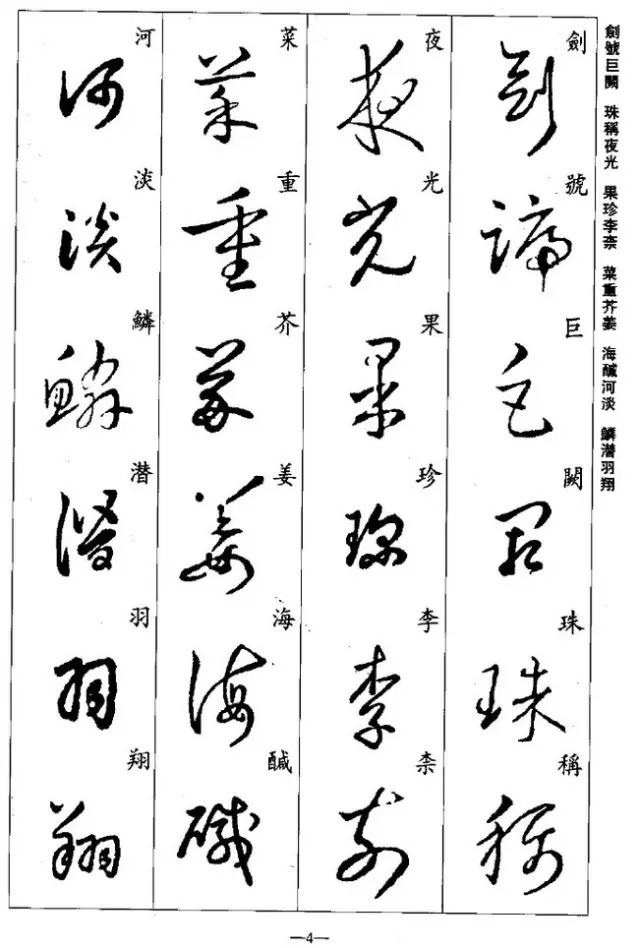 劍號巨闕 珠稱夜光 果珍李柰 菜重芥姜 海醎河淡 鱗潜羽翔
劍號巨闕珠稱
夜光果珍李柰
菜重芥姜海醎
河淡鱗潜羽翔
—4—